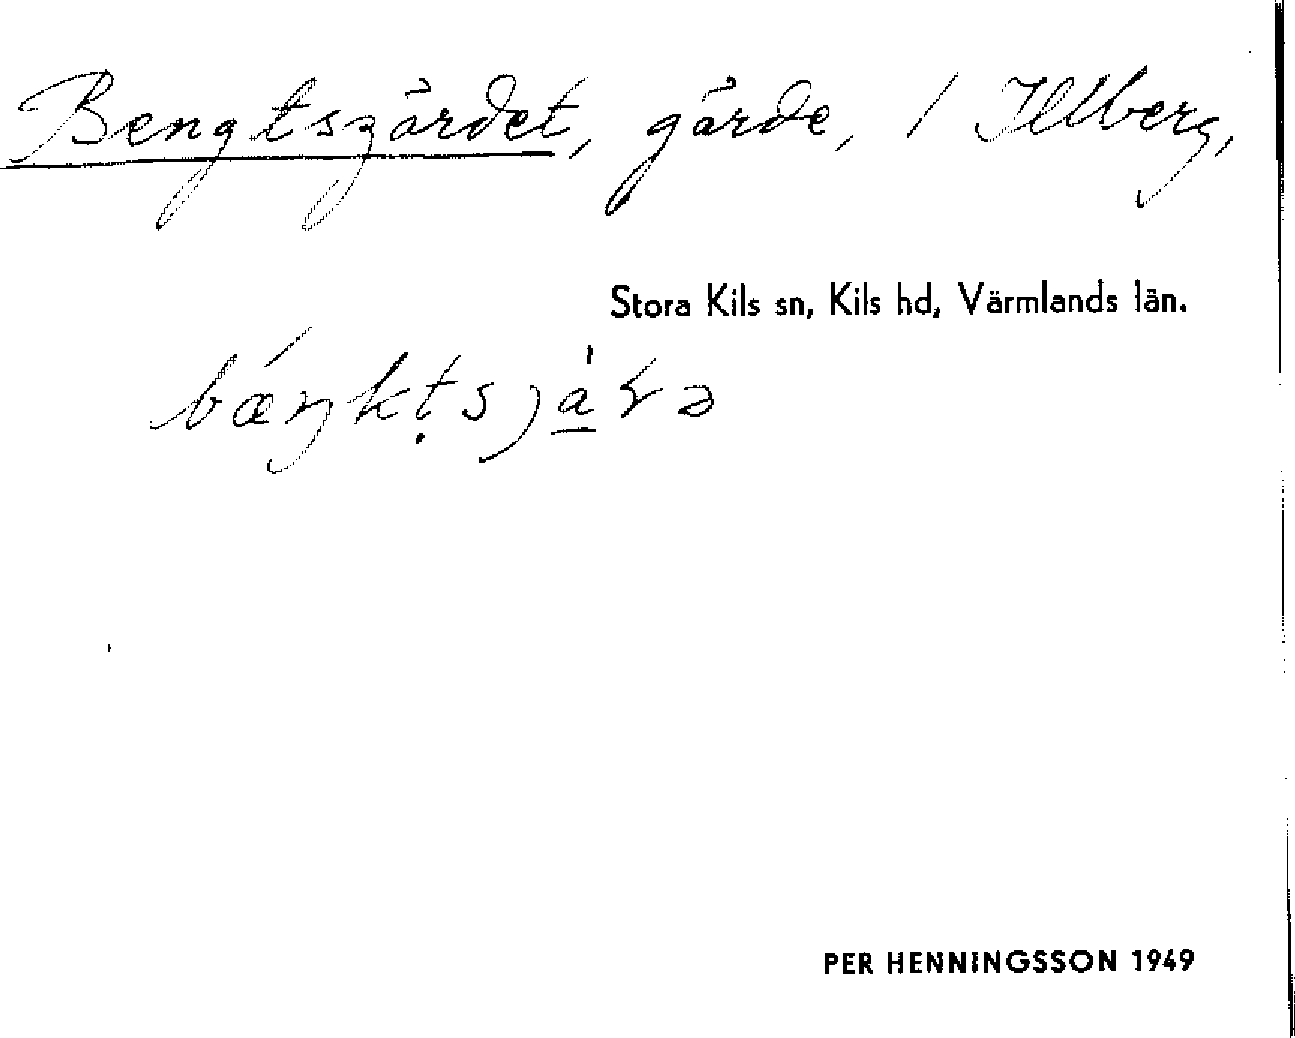 Bengtsgärdet, gärde, / Illberg,
Stora Kils sn, Kils hd, Värmlands län.
PER HENNINGSSON 1949